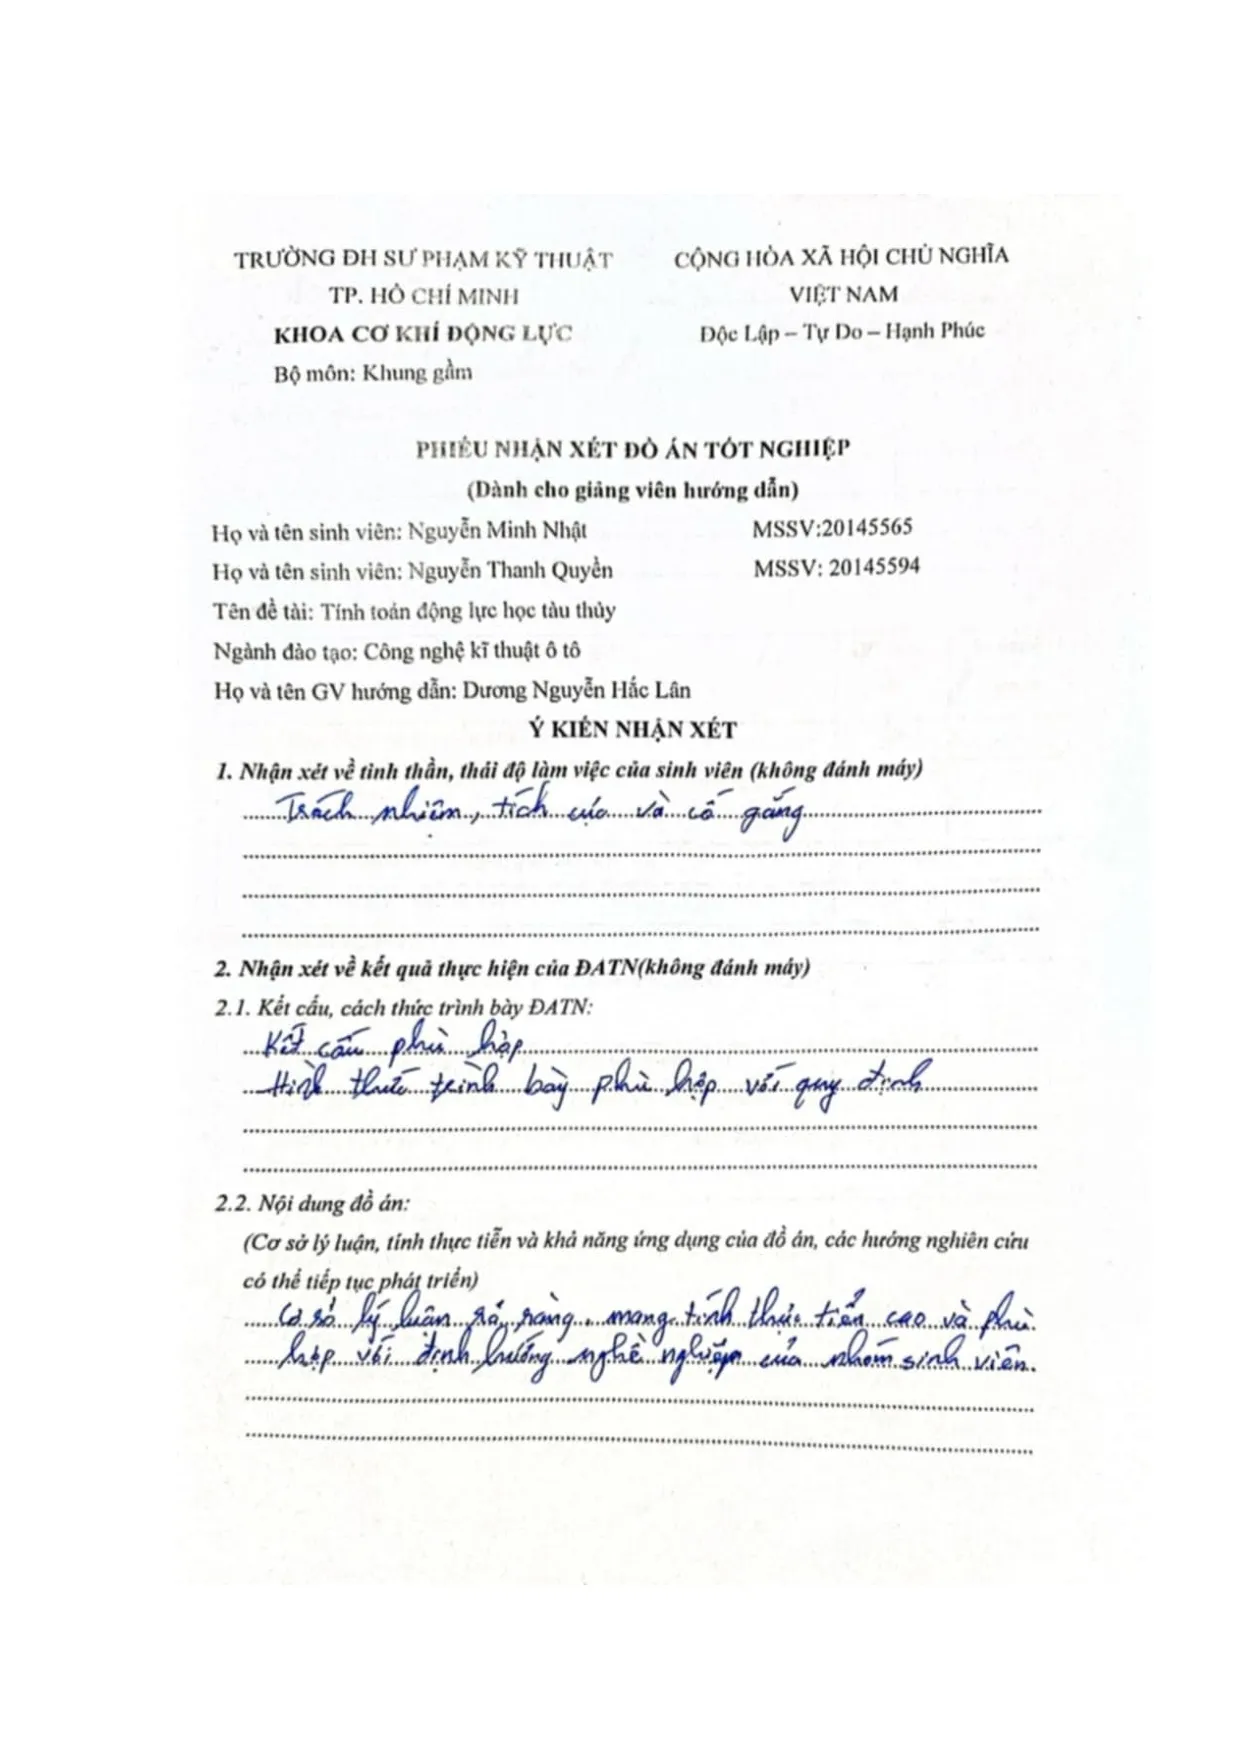 TRƯỜNG ĐH SƯ PHẠM KỸ THUẬT
TP. HỒ CHÍ MINH
KHOA CƠ KHÍ ĐỘNG LỰC
Bộ môn: Khung gầm
CỘNG HÒA XÃ HỘI CHỦ NGHĨA
VIỆT NAM
Độc Lập – Tự Do – Hạnh Phúc
PHIẾU NHẬN XÉT ĐỒ ÁN TỐT NGHIỆP
(Dành cho giảng viên hướng dẫn)
Họ và tên sinh viên: Nguyễn Minh Nhật MSSV:20145565
Họ và tên sinh viên: Nguyễn Thanh Quyền MSSV: 20145594
Tên đề tài: Tính toán động lực học tàu thủy
Ngành đào tạo: Công nghệ kĩ thuật ô tô
Họ và tên GV hướng dẫn: Dương Nguyễn Hắc Lân
Ý KIẾN NHẬN XÉT
1. Nhận xét về tinh thần, thái độ làm việc của sinh viên (không đánh máy)
Trách nhiệm, tích cực và cố gắng
2. Nhận xét về kết quả thực hiện của ĐATN(không đánh máy)
2.1. Kết cấu, cách thức trình bày ĐATN:
Kết cấu phù hợp
Hình thức trình bày phù hợp với quy định
2.2. Nội dung đồ án:
(Cơ sở lý luận, tính thực tiễn và khả năng ứng dụng của đồ án, các hướng nghiên cứu
có thể tiếp tục phát triển)
Cơ sở lý luận rõ ràng, mang tính thực tiễn cao và phù
hợp với định hướng nghề nghiệp của nhóm sinh viên.